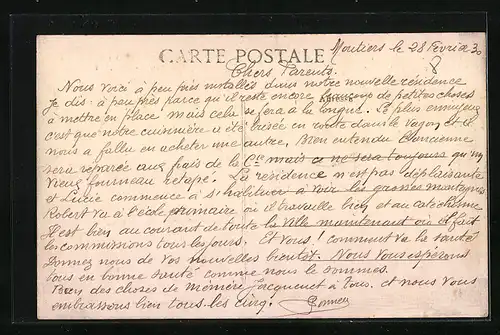 CARTE POSTALE
Moutiers le 28 Février 30
Chers Parents.
Nous voici à peu près installés dans notre nouvelle résidence
Je dis à peu près parce qu'il reste encore beaucoup de petites choses
à mettre en place. mais cela se fera à la longue. Le plus ennuyeux
c'est que notre cuisinière a été brisée en route dans le wagon et il
nous a fallu en acheter une autre. Bien entendu l'ancienne
sera réparée aux frais de la Cie mais ce ne sera toujours qu'un
vieux fourneau retapé. La résidence n'est pas déplaisante
et Lucie commence à s'habituer à voir les grosses montagnes
Robert va à l'école primaire où il travaille bien et au catéchisme
Il est bien au courant de toute la ville maintenant où il fait
les commissions tous les jours. Et vous! comment va la santé
Donnez nous de vos nouvelles bientôt. Nous vous espérons
tous en bonne santé comme nous le sommes.
Bien des choses de mémère Jacquenet à tous. et nous vous
embrassons bien tous les cinq.